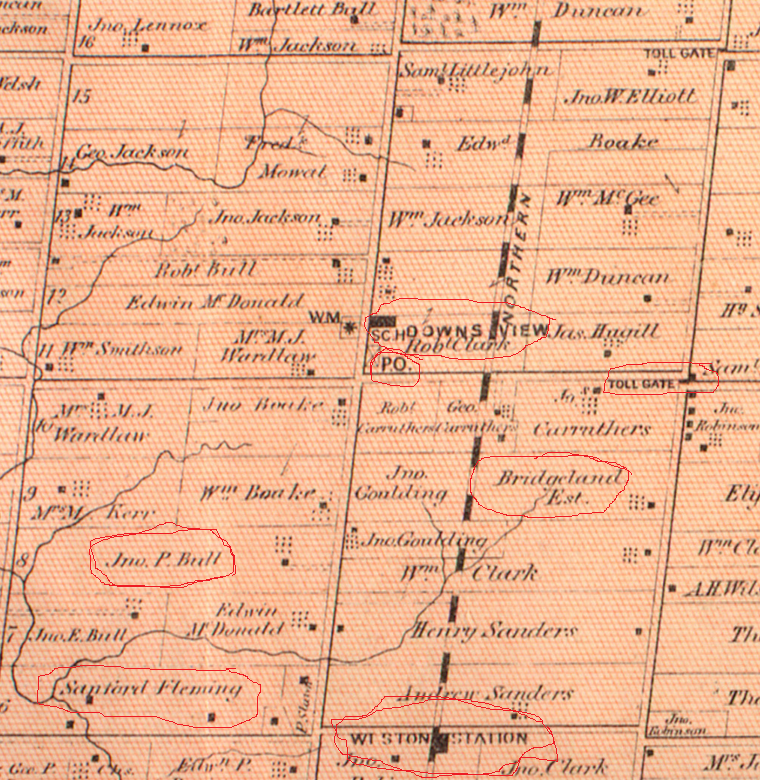 Jackson
16
Jno. Lennox
Bartlett Bull
Wm. Jackson
Wm. Duncan
TOLL GATE
Welsh
15
Saml. Littlejohn
Jno. W. Elliott
Geo. Jackson
Fred.k
Mowat
Edwd.
Boake
13
Wm.
Jackson
Jno. Jackson
Wm. Jackson
Wm. McGee
NORTHERN
Robt. Bull
Wm. Duncan
12
Edwin McDonald
W.M.
SCH
DOWNSVIEW
Jas. Hugill
Robt. Clark
11
Wm. Smithson
Mrs. M.J.
Wardlaw
P.O.
TOLL GATE
Saml.
Mrs. M.J.
Wardlaw
10
Jno Boake
Robt.
Carruthers
Geo.
Carruthers
Jos.
Carruthers
Jno.
Robinson
9
Mrs. M. Kerr
Wm. Boake
Jno.
Goulding
Bridgeland
Est.
8
Jno. P. Bull
Jno. Goulding
Wm. Clark
7
Jno. E. Bull
Edwin
McDonald
Henry Sanders
6
Sanford Fleming
Andrew Sanders
Jno.
Robinson
WESTON STATION
Geo. P.
Chs.
Edwn. P.
Jno.
Jno. Clark
Mrs. J.